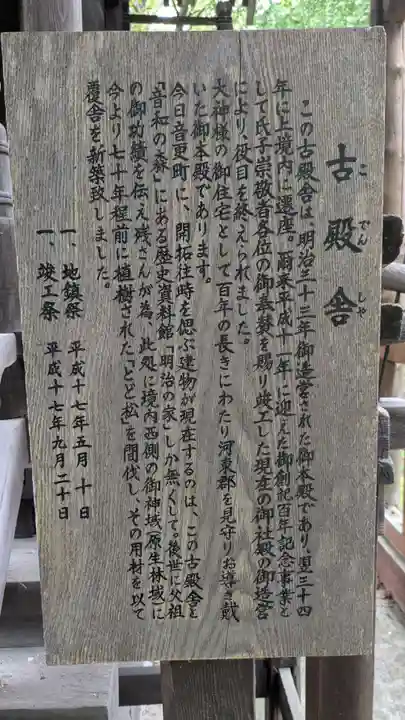 古殿舎
こでんしゃ
この古殿舎は、明治三十三年御造営された御本殿であり、翌三十四
年に上境内に遷座。爾来平成十一年に迎えた御創祀百年記念事業と
して氏子崇敬者各位の御奉賛を賜り竣工した現在の御社殿の御造営
により、役目を終えられました。
大神様の御住宅として百年の長きにわたり河東郡を見守りお導き戴
いた御本殿であります。
今日音更町に、開拓往時を偲ぶ建物が現在するのは、この古殿舎と
「音和の森」にある歴史資料館「明治の家」しか無くして。後世に父祖
の御功績を伝え残さんが為、此処に境内西側の御神域(原生林域)に
今より七十年程前に植樹された「とど松」を間伐し、その用材を以て
覆舎を新築致しました。
一、地鎮祭 平成十七年五月十日
一、竣工祭 平成十七年九月二十日